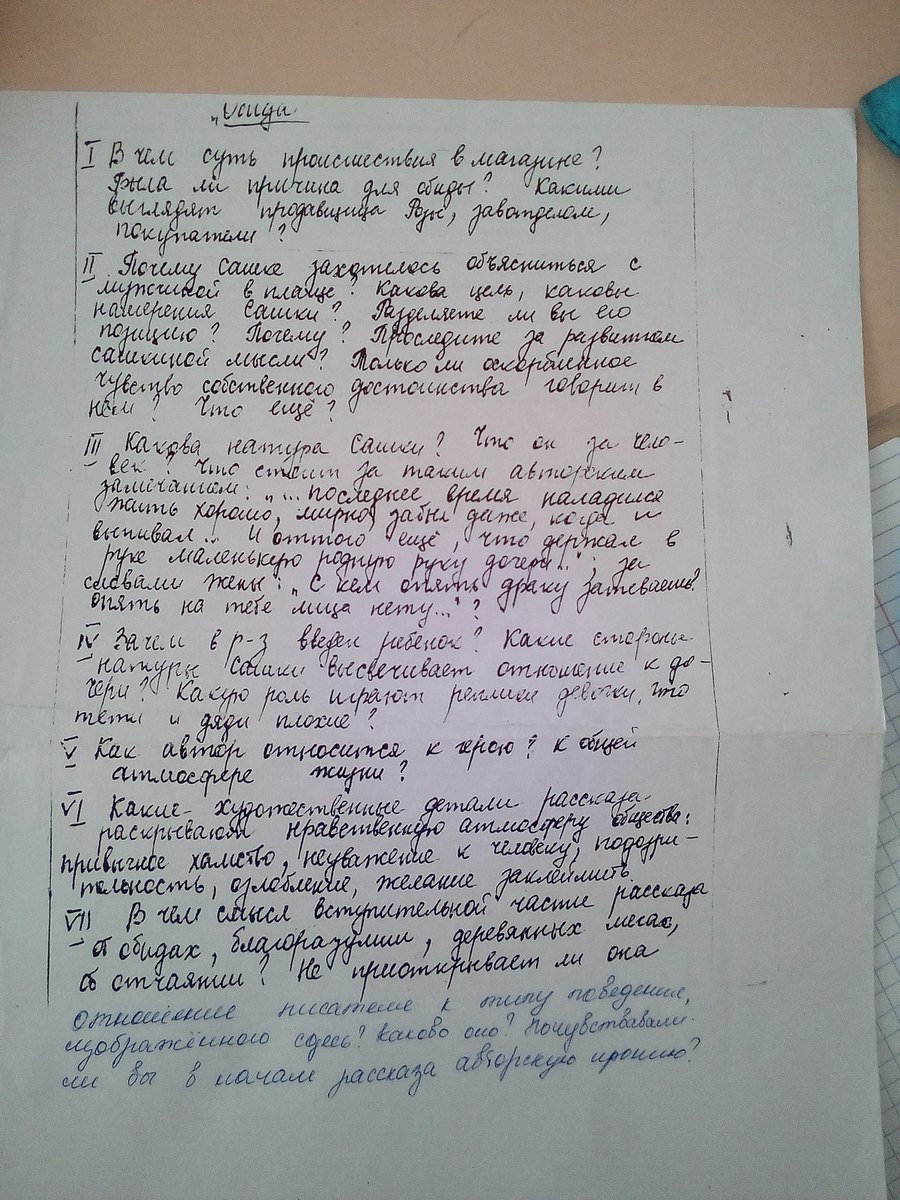 „Обида
I В чем суть происшествия в магазине?
Была ли причина для обиды? Какими
выглядят продавщица Роза, завотделом,
покупатели?
II Почему Сашке захотелось объясниться с
мужчиной в плаще? Какова цель, каковы
намерения Сашки? Разделяете ли вы его
позицию? Почему? Проследите за развитием
сашкиной мысли? Только ли оскорбленное
чувство собственного достоинства говорит в
нем? Что ещё?
III Какова натура Сашки? Что он за чело-
век? Что стоит за таким авторским
замечанием: „...последнее время наладился
жить хорошо, мирно, забыл даже, когда и
выпивал... И оттого ещё, что держал в
руке маленькую родную руку дочери..."; за
словами жены: „С кем опять драку затеваешь?
опять на тебе лица нету..."?
IV Зачем в р-з введен ребенок? Какие стороны
натуры Сашки высвечивает отношение к до-
чери? Какую роль играют реплики девочки, что
тети и дяди плохие?
V Как автор относится к герою? к общей
атмосфере жизни?
VI Какие художественные детали рассказа
раскрывают нравственную атмосферу общества:
привычное хамство, неуважение к человеку, подозри-
тельность, озлобление, желание заклеймить.
VII В чем смысл вступительной части рассказа
об обидах, благоразумии, деревянных мечах,
об отчаянии? Не приоткрывает ли она
отношение писателя к типу поведения,
изображённого здесь? Каково оно? Почувствавали
ли вы в начале рассказа авторскую иронию?